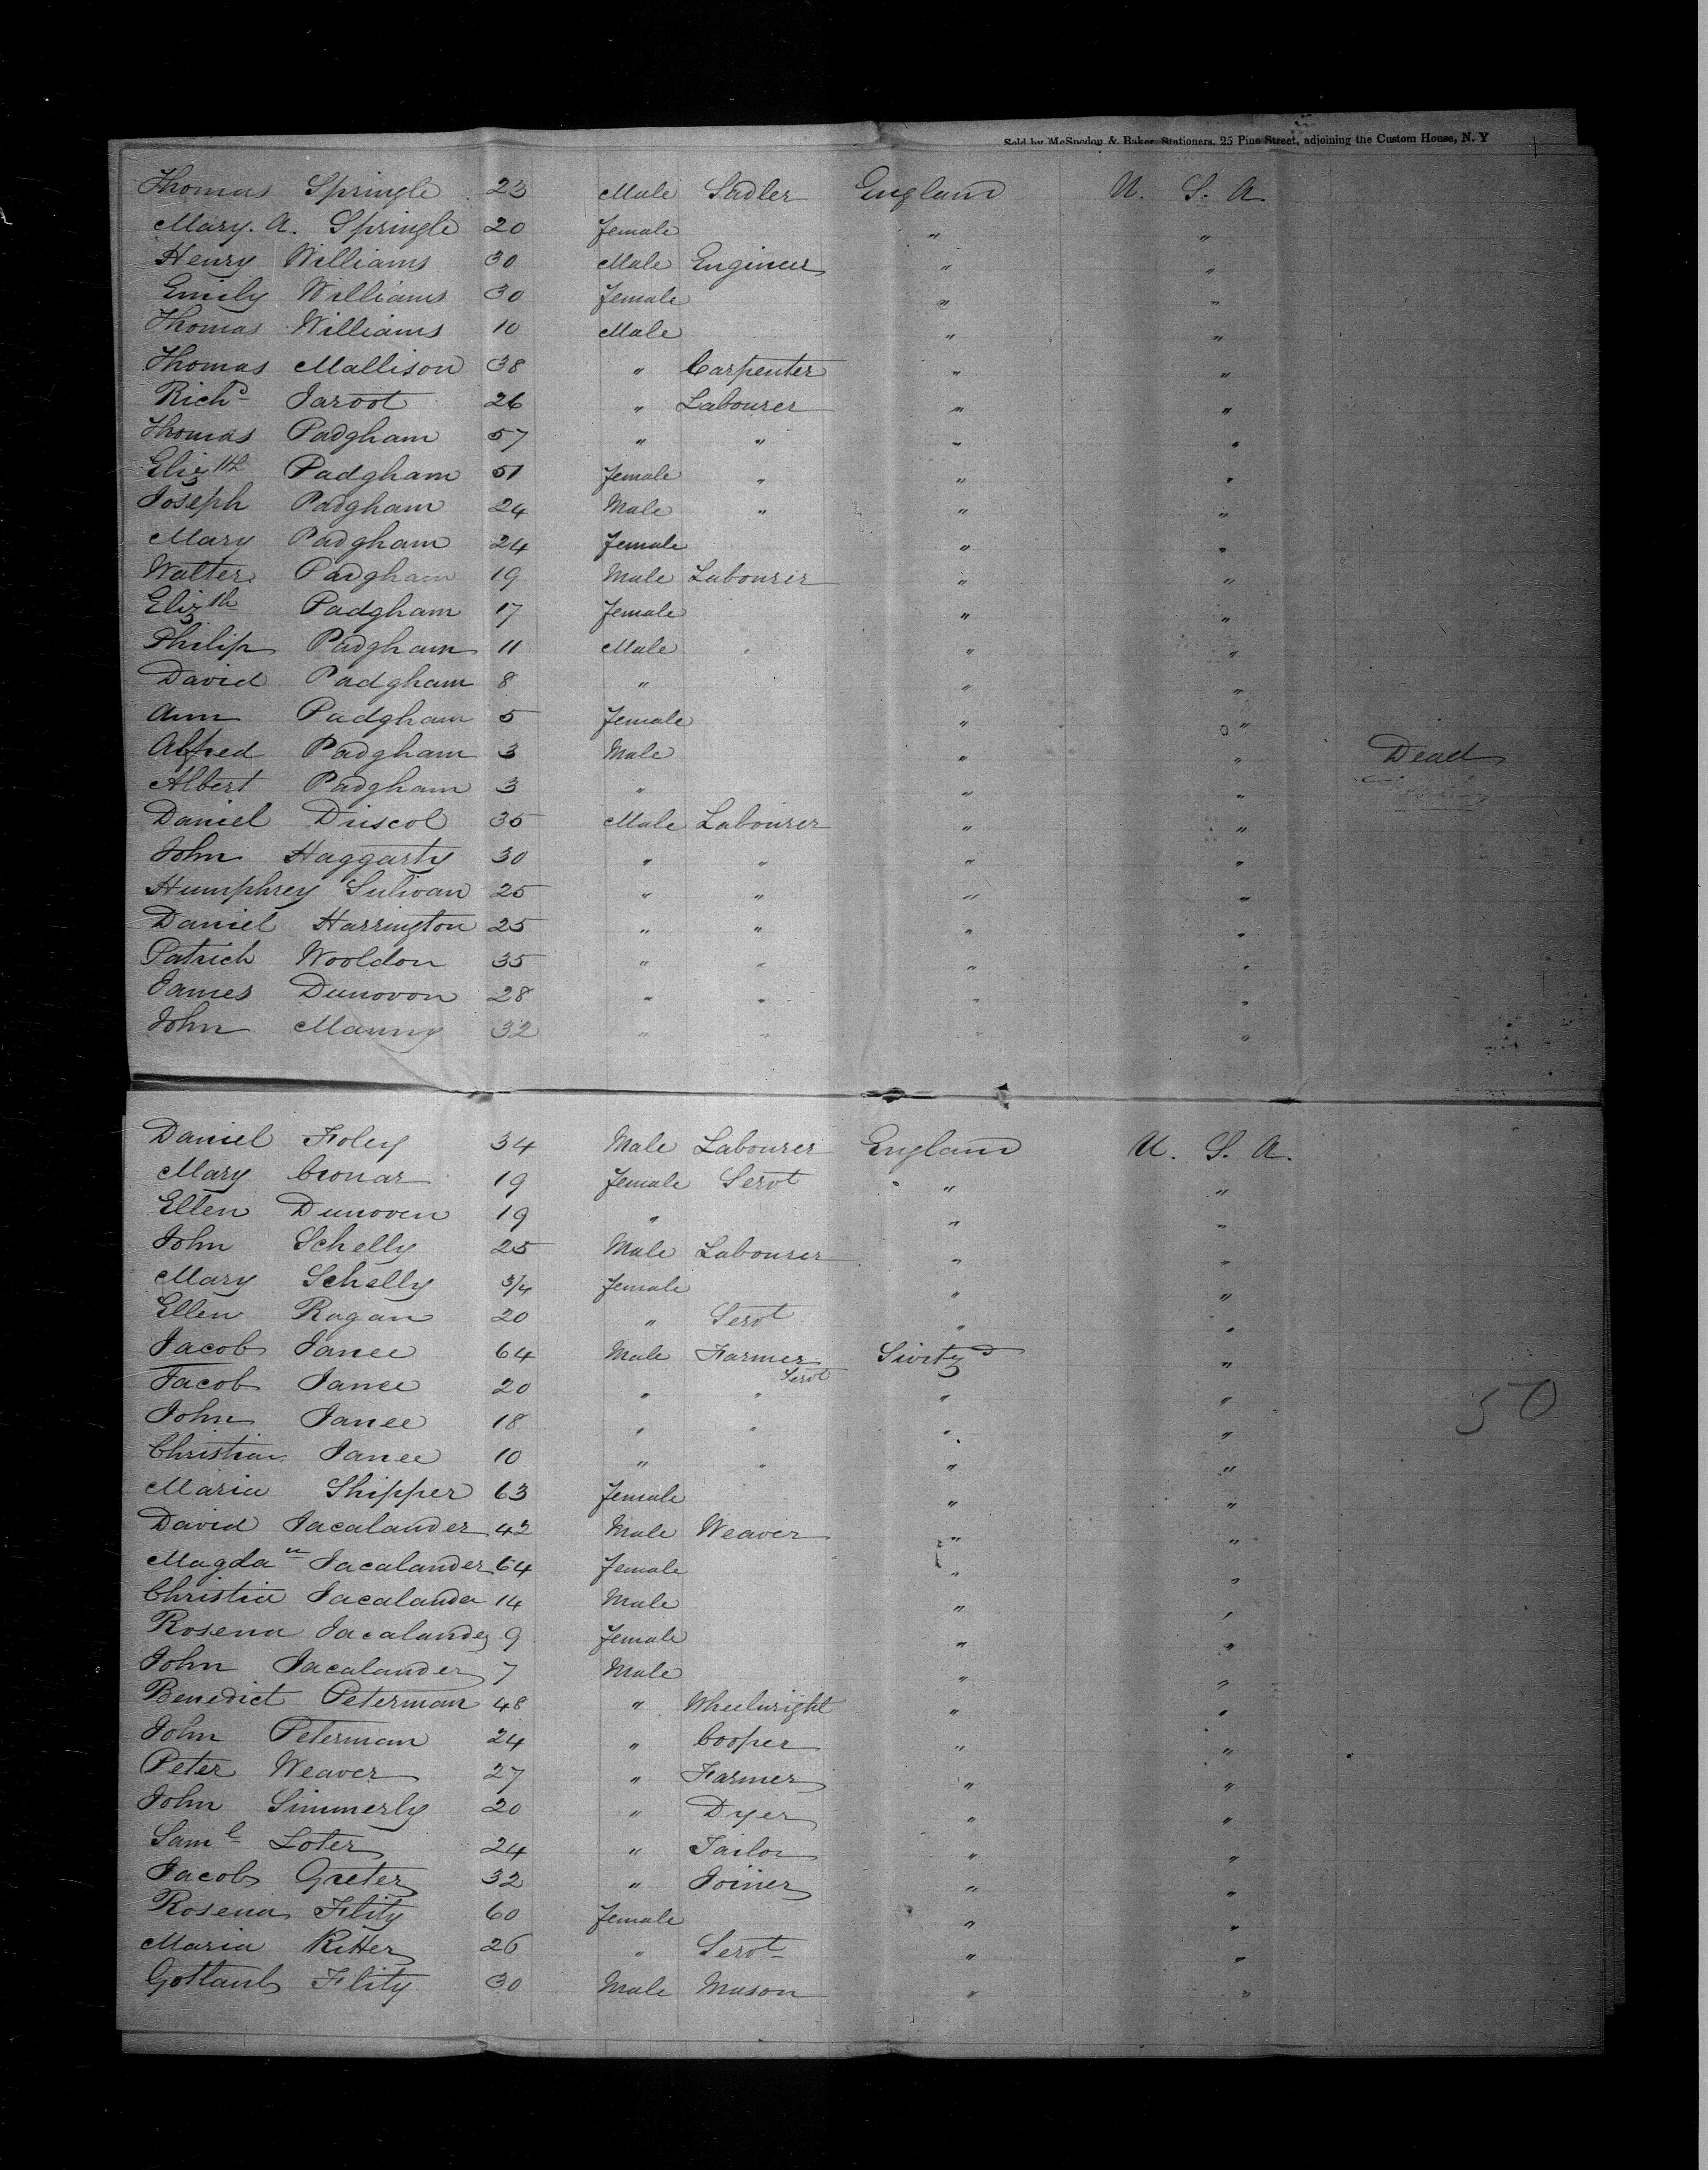 Sold by McSpedon & Baker, Stationers, 25 Pine Street, adjoining the Custom House, N. Y
Thomas Springle 23 Male Sadler England U. S. A.
Mary. A. Springle 20 Female " "
Henry Williams 30 Male Engineer " "
Emily Williams 30 Female " "
Thomas Williams 10 Male " "
Thomas Mallison 38 " Carpenter " "
Richd Jaroot 26 " Labourer " "
Thomas Padgham 57 " " " "
Elizth Padgham 51 Female " " "
Joseph Padgham 24 Male " " "
Mary Padgham 24 Female " "
Walter Padgham 19 Male Labourer " "
Elizth Padgham 17 Female " "
Philip Padgham 11 Male " "
David Padgham 8 " " "
Ann Padgham 5 Female " "
Alfred Padgham 3 Male " " Dead
Albert Padgham 3 " " "
Daniel Driscol 35 Male Labourer " "
John Haggarty 30 " " " "
Humphrey Sulivan 25 " " " "
Daniel Harrington 25 " " " "
Patrick Wooldon 35 " " " "
James Dunovon 28 " " " "
John Manny 32 " " " "
Daniel Foley 34 Male Labourer England U. S. A.
Mary Cronar 19 Female Servt " "
Ellen Dunoven 19 " " "
John Schelly 25 Male Labourer " "
Mary Schelly 3/4 Female " "
Ellen Ragan 20 " Servt " "
Jacob Janee 64 Male Farmer Switzd "
Jacob Janee 20 " " Servt " "
John Janee 18 " " " "
Christian Janee 10 " " " "
50
Maria Shipper 63 Female " "
David Jacalander 42 Male Weaver " "
Magdan Jacalander 64 Female " "
Christia Jacalander 14 Male " "
Rosena Jacalander 9 Female " "
John Jacalander 7 Male " "
Benedict Peterman 48 " Wheelwright " "
John Peterman 24 " Cooper " "
Peter Weaver 27 " Farmer " "
John Simmerly 20 " Dyer " "
Saml Loter 24 " Tailor " "
Jacob Greter 32 " Joiner " "
Rosena Flity 60 Female " "
Maria Ritter 26 " Servt " "
Gotlaub Flity 30 Male Mason " "